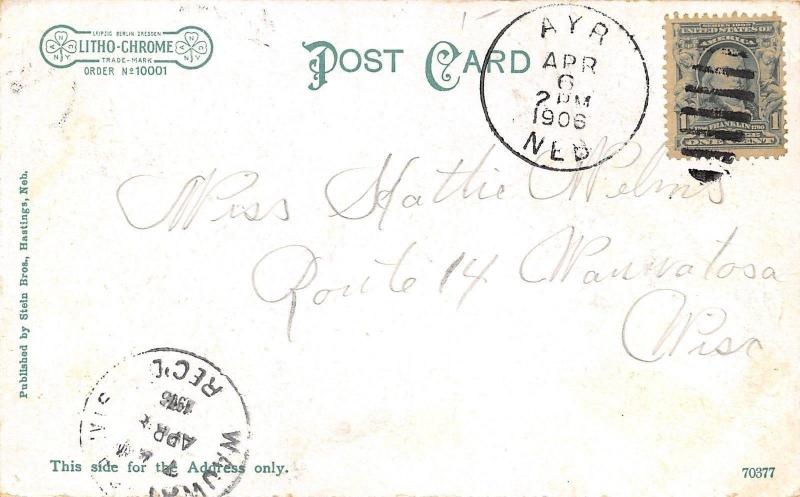 LEIPZIG BERLIN DRESDEN
LITHO-CHROME
TRADE-MARK
ORDER Nº 10001
POST CARD
AYR
APR
6
2 PM
1906
NEB
SERIES 1902
UNITED STATES OF
AMERICA
FRANKLIN
1 1
ONE CENT
Miss Hattie Welms
Route 14 Wauwatosa
Wisc
Published by Stein Bros., Hastings, Neb.
REC'D
APR
This side for the Address only.
70377